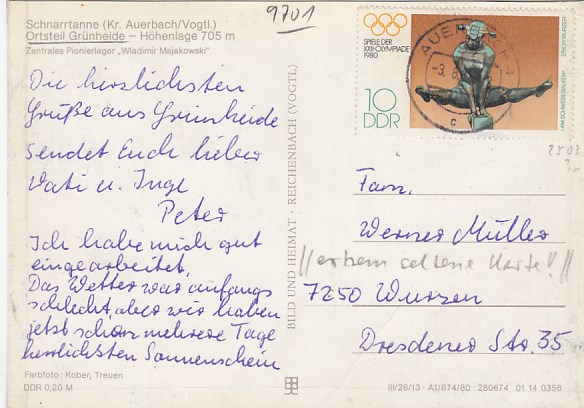 Schnarrtanne (Kr. Auerbach/Vogtl.)
Ortsteil Grünheide – Höhenlage 705 m
Zentrales Pionierlager „Wladimir Majakowski"
9701
Die herzlichsten
Grüße aus Grünheide
sendet Euch lieber
Vati u. Inge
Peter
Ich habe mich gut
eingearbeitet.
Das Wetter war anfangs
schlecht, aber wir haben
jetzt schon mehrere Tage
herrlichsten Sonnenschein
Farbfoto: Kober, Treuen
DDR 0,20 M
BILD UND HEIMAT · REICHENBACH (VOGTL)
SPIELE DER
XXII. OLYMPIADE
1980
10
DDR
AUERBACH
c
ERICH WURZER
»AM SCHWEBEBALKEN«
Fam.
Werner Müller
//extrem seltene Karte!!//
7250 Wurzen
Dresdener Str. 35
III/26/13 · A1/674/80 · 280674 01 14 0356